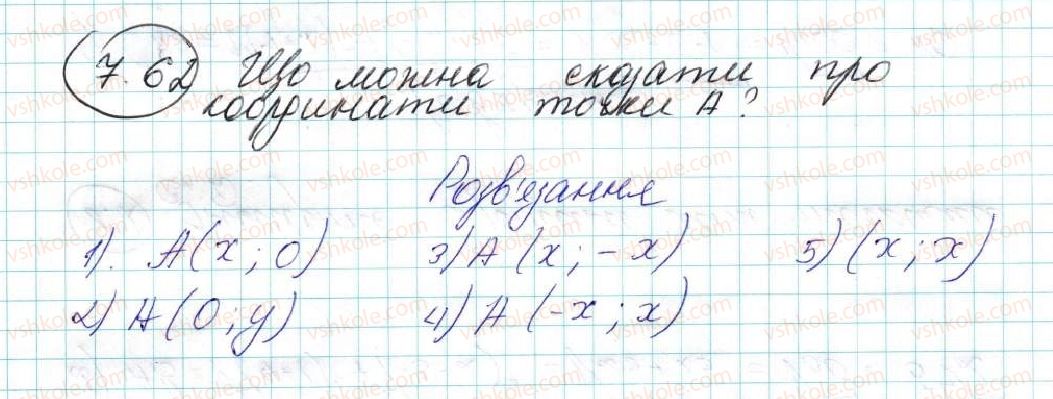 7.62 Що можна сказати про
координати точки А?
Розв'язання
1). А(x; 0) 3) А (x; -x) 5) (x; x)
2) А (0; y) 4) А (-x; x)